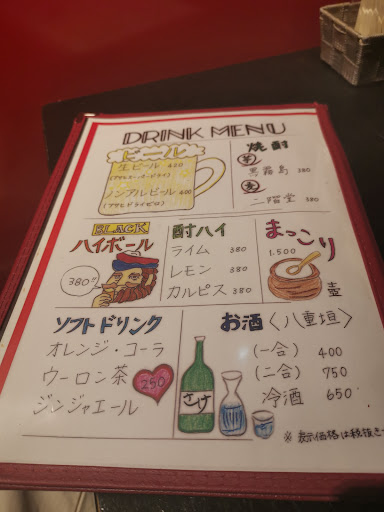 DRINK MENU
ビール
生ビール 420
(アサヒスーパードライ)
ノンアルビール 400
(アサヒドライゼロ)
焼酎
芋
黒霧島 380
麦
二階堂 380
BLACK
ハイボール
380
酎ハイ
ライム 380
レモン 380
カルピス 380
まっこり
1,500
壺
ソフトドリンク
オレンジ・コーラ
ウーロン茶
ジンジャエール
250
お酒〈八重垣〉
(一合) 400
(二合) 750
冷酒 650
さけ
※表示価格は税抜き